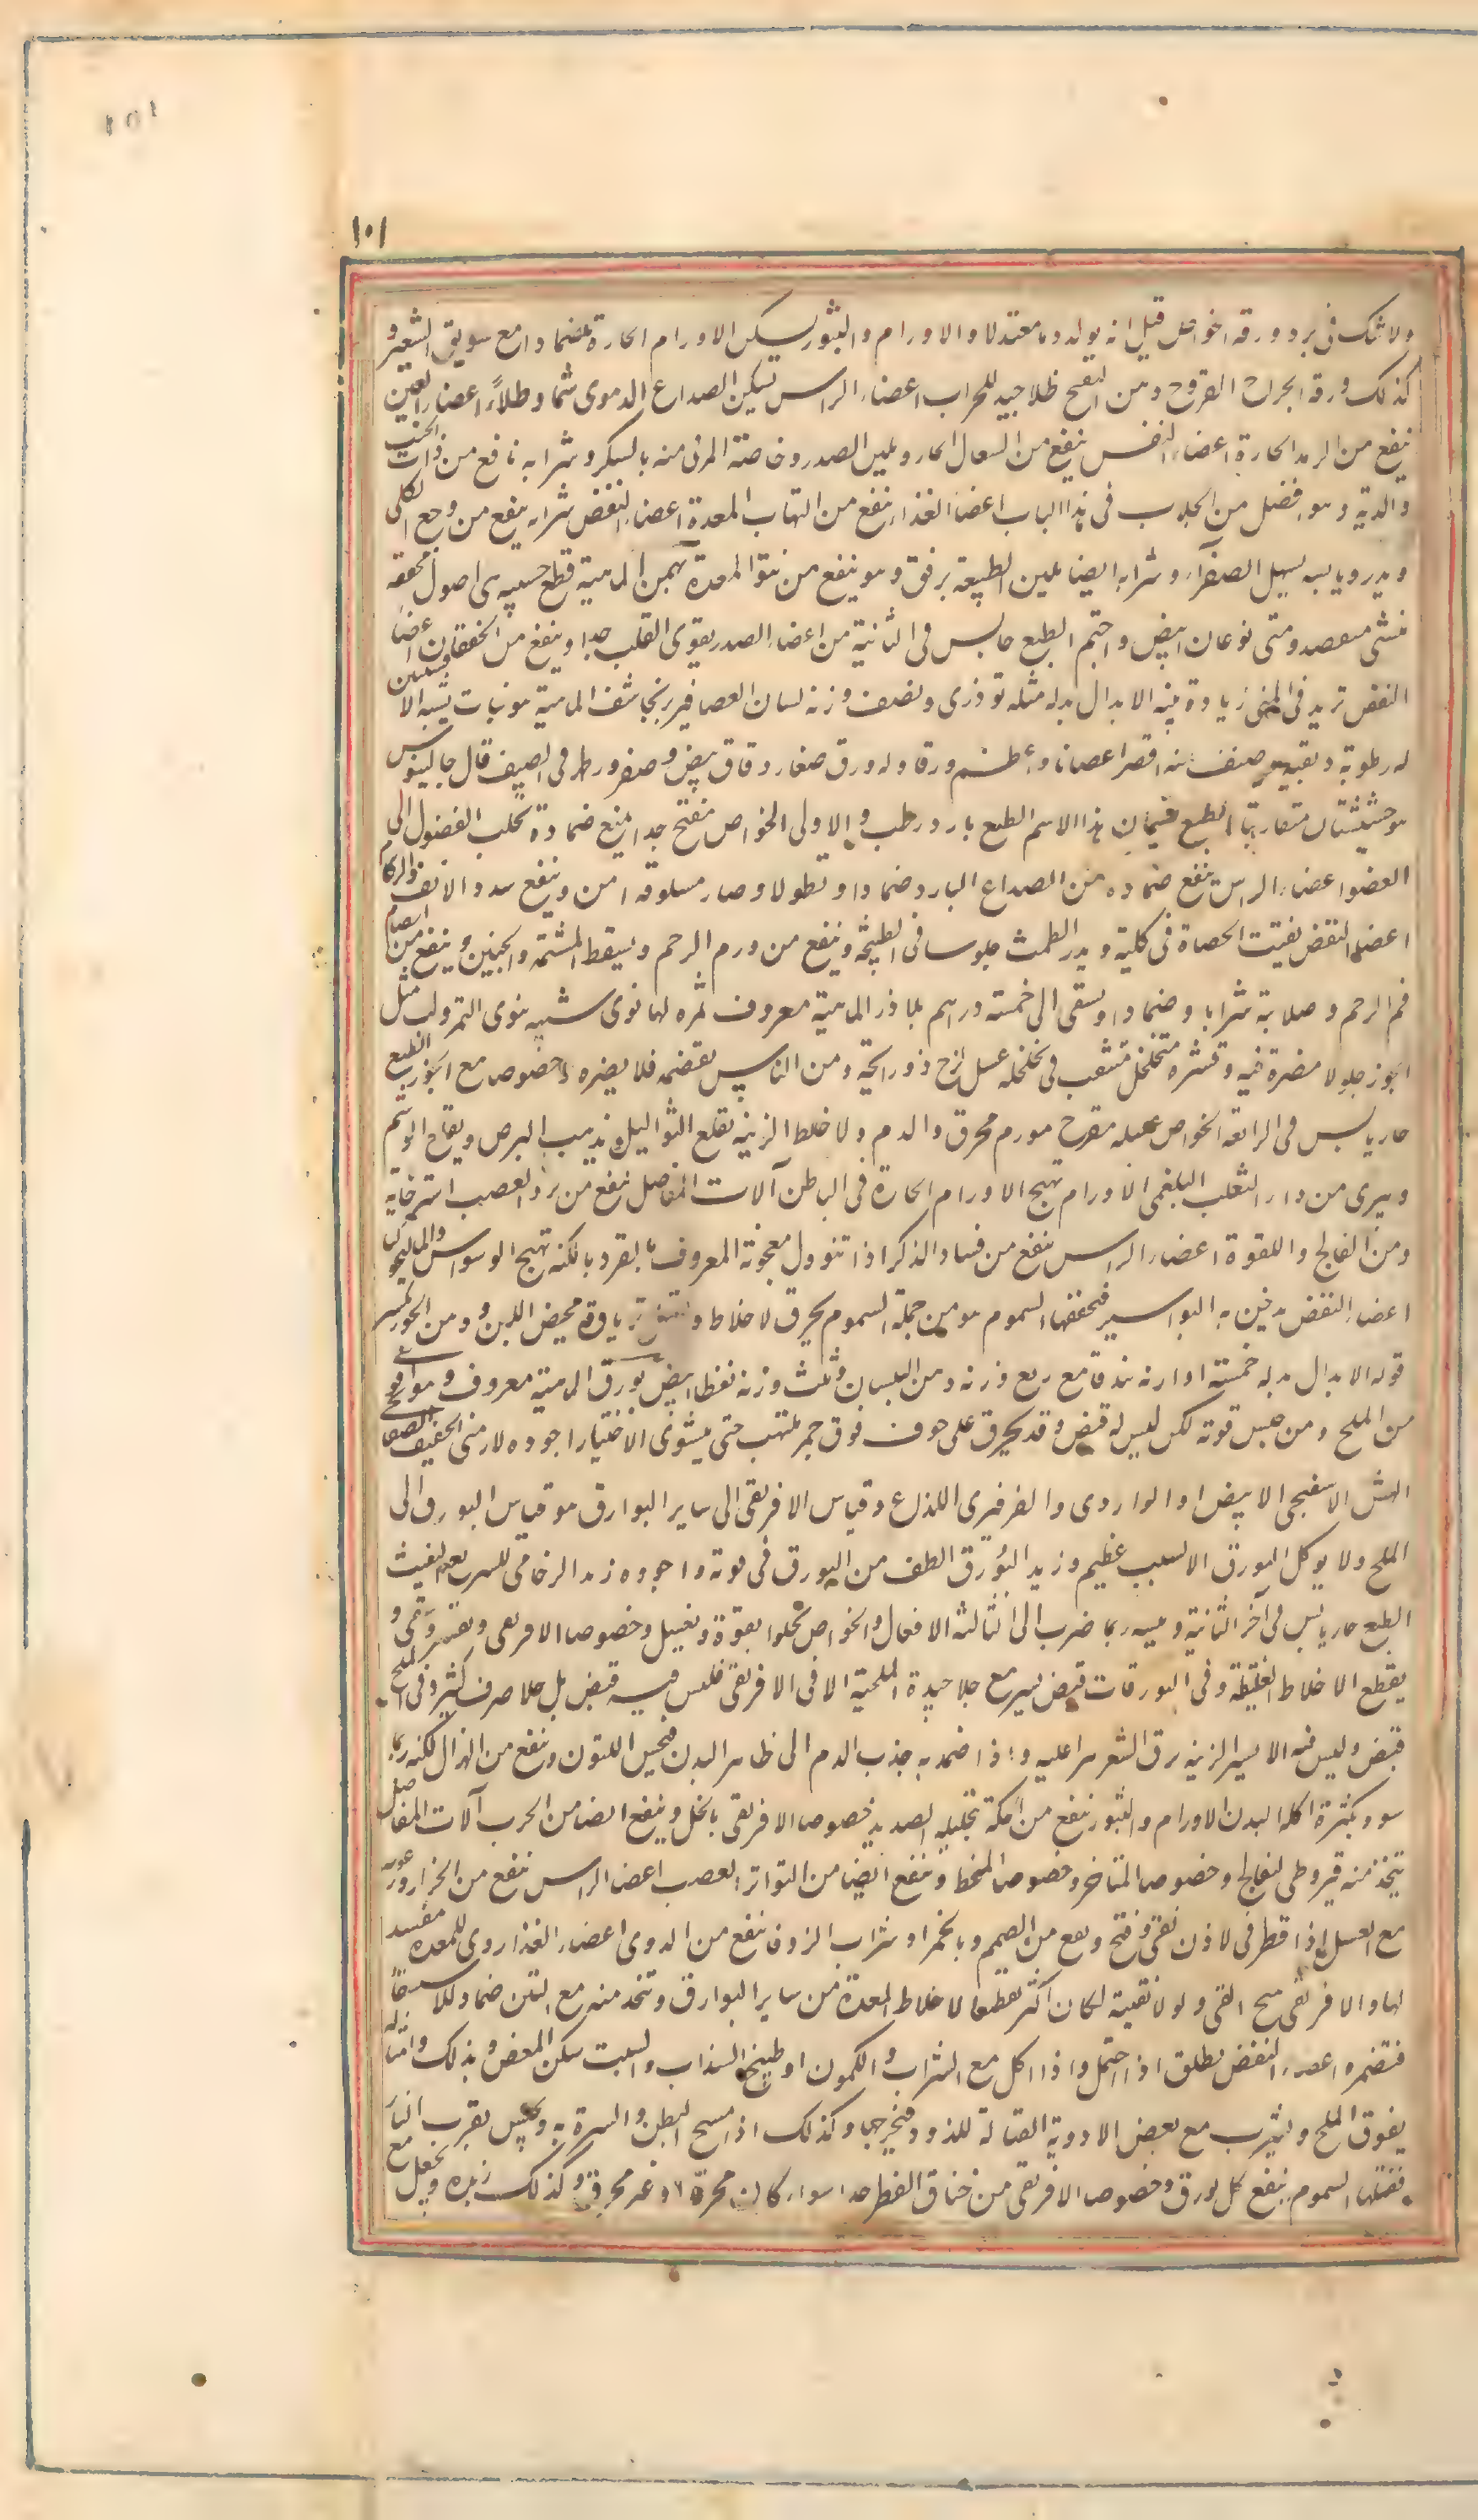 ١٠١
١٠١
ولا شك فى برد ورقه الخواص قيل انه يولد دما معتدلا والاورام والبثور يسكن الاورام الحارة ضمادا مع سويق الشعير و
كذلك ورقه الجراح القروح ومن القمح طلا جيد للجراب اعضاء الراس يسكن الصداع الدموى شما وطلاءً اعضاء العين
ينفع من الرمد الحارة اعضاء النفس ينفع من السعال الحار ويلين الصدر وخاصة المربى منه بالسكر وشرابه نافع من ذات الجنب
والرية وهو افضل من الجلاب فى هذا الباب اعضا الغذاء ينفع من التهاب المعدة اعضاء النفض شرابه ينفع من وجع الكلى
ويدر ويابسه يسهل الصفرآء وشرابه ايضا يلين الطبيعة برفق وهو ينفع من نتوا المعدة بهمن الماهية قطع خشبيه هى اصول مجففه
نوعان ابيض واحمر الطبع حار يابس فى الثانية من اعضاء الصدر يقوى القلب جدا وينفع من الخفقان اعضا
النفض تزيد فى المنى زيادة بينه الابدال بدله مثله توذرى ونصف وزنه لسان العصافير برنجاسف الماهية هو نبات يشبه الافسنتين
له رطوبة دبقيه وصنف منه اقصر اغصانا واعظم ورقا وله ورق صغار دقاق بيض وصفر ورطهر فى الصيف قال جالينوس
هو حشيشتان متقاربتا الطبع فيسميان بهذا الاسم الطبع بارد رطب فى الاولى الخواص مفتح جدا يمنع ضماده تحلب الفضول الى
العضو اعضاء الراس ينفع ضماده من الصداع البارد ضمادا ونطولا وصار مسلوقه امن وينفع سدد الانف والزكام
اعضاء النفض يفتت الحصاة فى كلية ويدر الطمث جلوسا فى الطبيخه وينفع من ورم الرحم ويسقط المشيمه والجنين وينفع من انضمام
فم الرحم وصلابته شرابا وضمادا ويسقى الى خمسة دراهم بلاذر الماهية معروف ثمره لها نوى شبيه بنوى التمر ولب مثل
الجوز حلو لا مضرة فيه وقشره متخلخل متثقب فى تخلخله عسل لزج ذو رايحة ومن الناس من يقضمه فلا يضره وخصوصا مع الجوز الطبع
حار يابس فى الرابعة الخواص عسله مقرح مورم محرق والدم والاخلاط الزينه يقلع الثواليل ويذهب البرص ويقلع الوشم
ويبرى من داء الثعلب البلغمى الاورام يهيج الاورام الحارة فى الباطن آلات المفاصل ينفع من برد العصب استرخائه
ومن الفالج واللقوة اعضاء الراس ينفع من فساد الذكر اذا تنوول معجونه المعروف بانقرديا لكنه يهيج الوسواس والماليخوليا
اعضاء النفض يدخن به البواسير فيجففها السموم هو من جملة السموم يحرق الاخلاط ترياقه مخيض اللبن ودهن الجوز يكسر
قوته الابدال بدله خمسة اوزانه بندقا مع ربع وزنه دهن البلسان وثلث وزنه نفطا ابيض بورق الماهية معروف وهو اقوى
من الملح ومن جنس قوته لكن ليس له قبض وقد يحرق على خزف فوق جمر ملتهب حتى ينشوى الاختيار اجوده الارمنى الخفيف الصفائحى
الهش الاسفنجى الابيض او الواردى والفرفيرى اللذاع وقياس الافريقى الى ساير البوارق هو قياس البورق الى
الملح ولا يوكل البورق الا لسبب عظيم وزبد البورق الطف من البورق فى قوته واجوده زبد الزجاجى السريع التفتت
الطبع حار يابس فى آخر الثانية ويبسه ربما ضرب الى الثالثة الافعال والخواص يجلوا بقوة ويغسل وخصوصا الافريقى ويقشر وينقى و
يقطع الاخلاط الغليظة وفى البورقات قبض يسير مع جلا جيدة الملحية الا فى الافريقى فليس فيه قبض بل جلا صرف كثير وفى الملح
قبض وليس فيه الا يسير الزينه يرق الشعر نثرا عليه واذا ضمد به جذب الدم الى ظاهر البدن فيحسن اللون وينفع من الهزال لكنه ربما
سود بكثرة اكله البدن الاورام والبثور ينفع من الحكة بتحليله الصديد خصوصا الافريقى بالخل وينفع ايضا من الجرب آلات المفاصل
يتخذ منه قيروطى للفالج وخصوصا المتاخر وخصوصا المنحط وينفع ايضا من التواتر العصب اعضا الراس ينفع من الحزاز وغرور
مع العسل اذا قطر فى الاذن نقى وفتح ونفع من الصمم وبالخمر او شراب الزوفا ينفع من الدوى اعضاء الغذا ردى للمعده مفسد
لها والافريقى يهيج القى ولولا تقيته لكان اكثر تقطيعا لاخلاط المعدة من ساير البوارق ويتخذ منه مع التين ضماد للاستسقا
فتضمره اعضاء النفض يطلق اذا احتمل واذا اكل مع الشراب والكمون او طبيخ السذاب والشبت سكن المغص وبذلك وامثاله
يفوق الملح ويشرب مع بعض الادوية القتالة للدود فيخرجها وكذلك اذا مسح البطن والسرة به ويجلس بقرب النار
فيقتلها السموم ينفع كل بورق وخصوصا الافريقى من خناق الفطر جدا سواء كان محرقا او غير محرق وكذلك زبده ويجعل مع